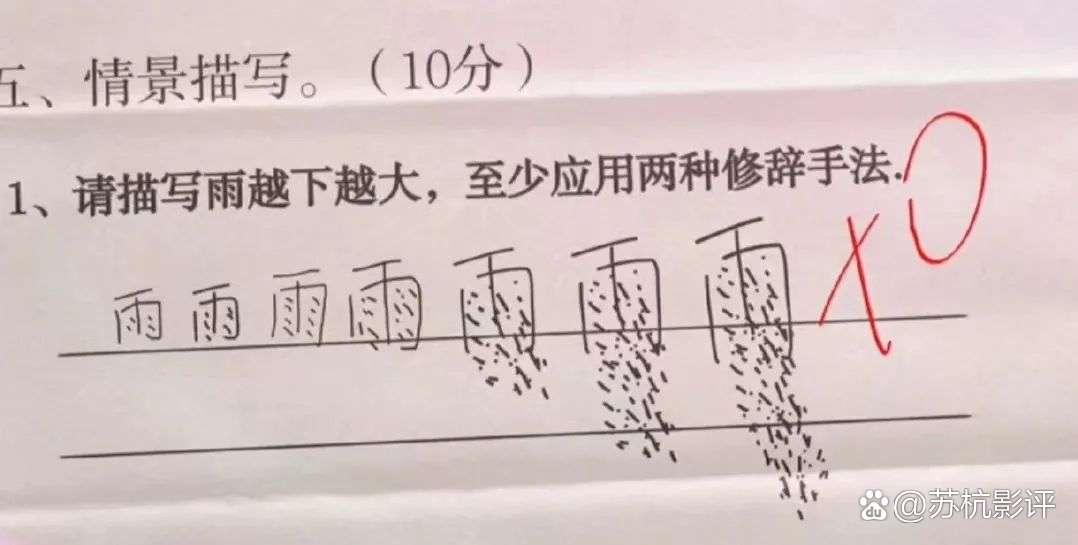 五、情景描写。（10分）
1、请描写雨越下越大，至少应用两种修辞手法.
雨 雨 雨 雨 雨 雨 雨 × 0
du @苏杭影评